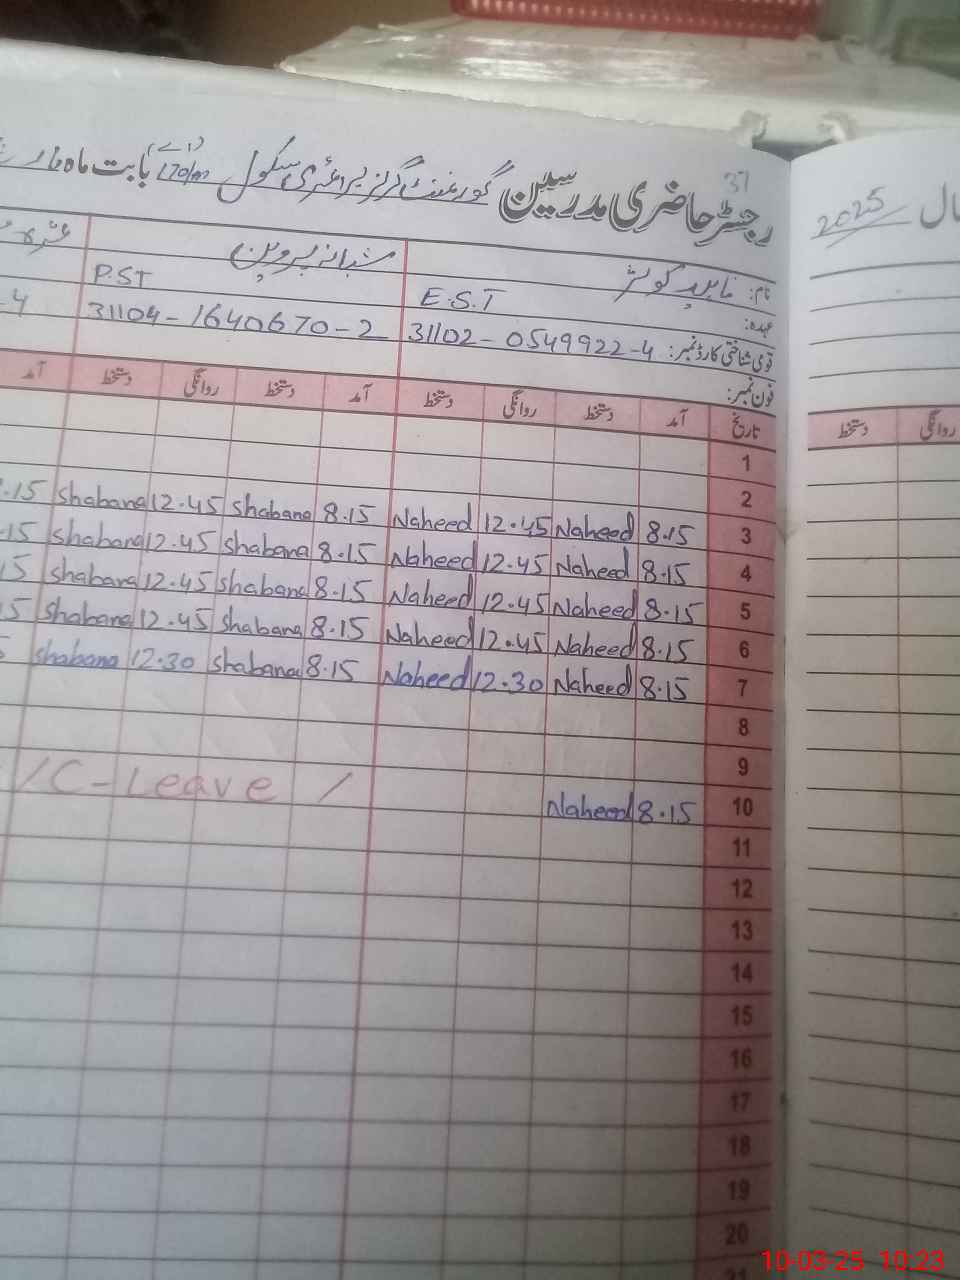 37
رجسٹر حاضری مدرسین گورنمنٹ گرلز پرائمری سکول 170/ بابت ماہ مارچ
سال 2025
نام: ناہید کوثر شبانہ پروین
عہدہ: E.S.T P.ST
قومی شناختی کارڈ نمبر: 31102-0549922-4 31104-1640670-2 -4
فون نمبر:
تاریخ آمد دستخط روانگی دستخط آمد دستخط روانگی دستخط آمد
روانگی دستخط
1
2
3 8.15 Naheed 12.45 Naheed 8.15 Shabana 12.45 Shabana .15
4 8.15 Naheed 12.45 Naheed 8.15 Shabana 12.45 Shabana .15
5 8.15 Naheed 12.45 Naheed 8.15 Shabana 12.45 Shabana 15
6 8.15 Naheed 12.45 Naheed 8.15 Shabana 12.45 Shabana 15
7 8.15 Naheed 12.30 Naheed 8.15 Shabana 12.30 Shabana
8
9
10 8.15 Naheed / C-Leave /
11
12
13
14
15
16
17
18
19
20
21
10-03-25 10:23